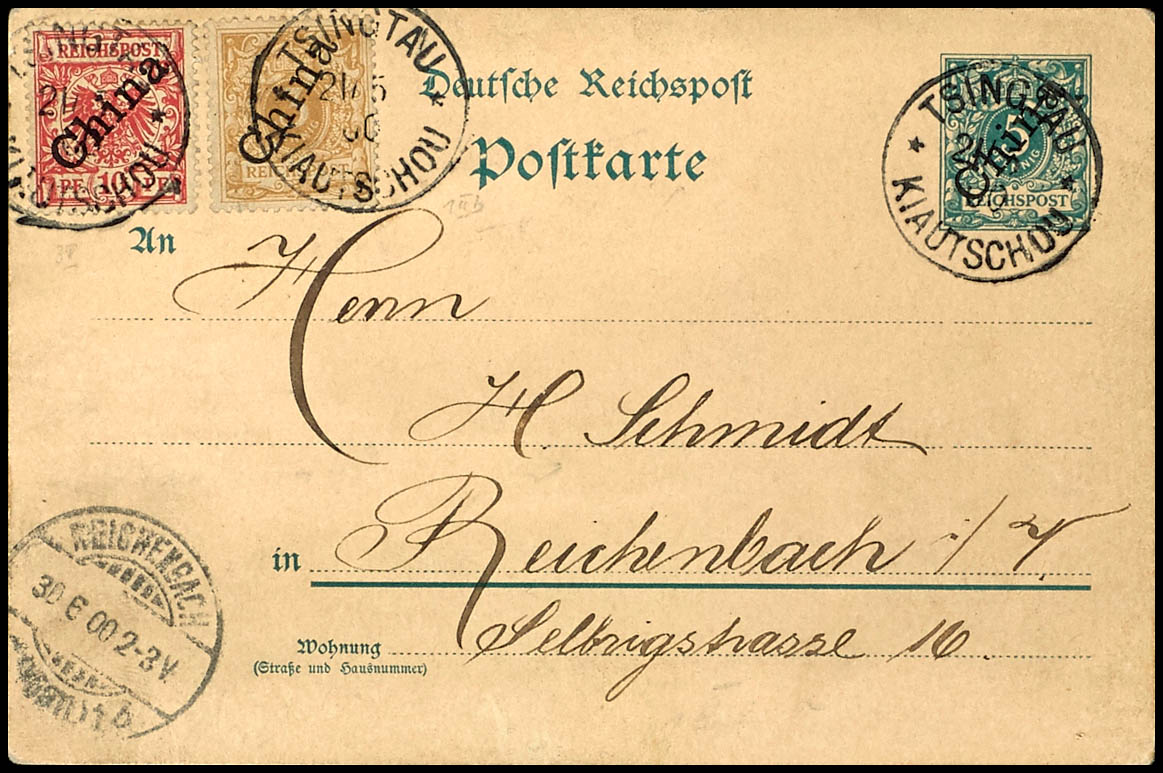 REICHSPOST
China
PF. 10 PF.
China
REICHS
TSINGTAU
KIAUTSCHOU
Deutsche Reichspost
Postkarte
5
China
REICHSPOST
TSINGTAU
KIAUTSCHOU
An
Herrn
H Schmidt
in Reichenbach i/V
Wohnung
(Straße und Hausnummer)
Selbrigstrasse 16.
REICHENBACH
30 6 00 2-3V